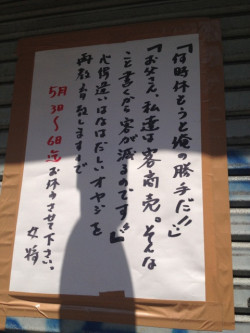 「何時休もうと俺の勝手だ!!」
「お父さん、私達は客商売。そんな
こと書くから客が減るのです!!」
と場違いはなはだしいオヤジを
再教育致しますので
5月3日〜6日迄お休みさせて下さい。
女将